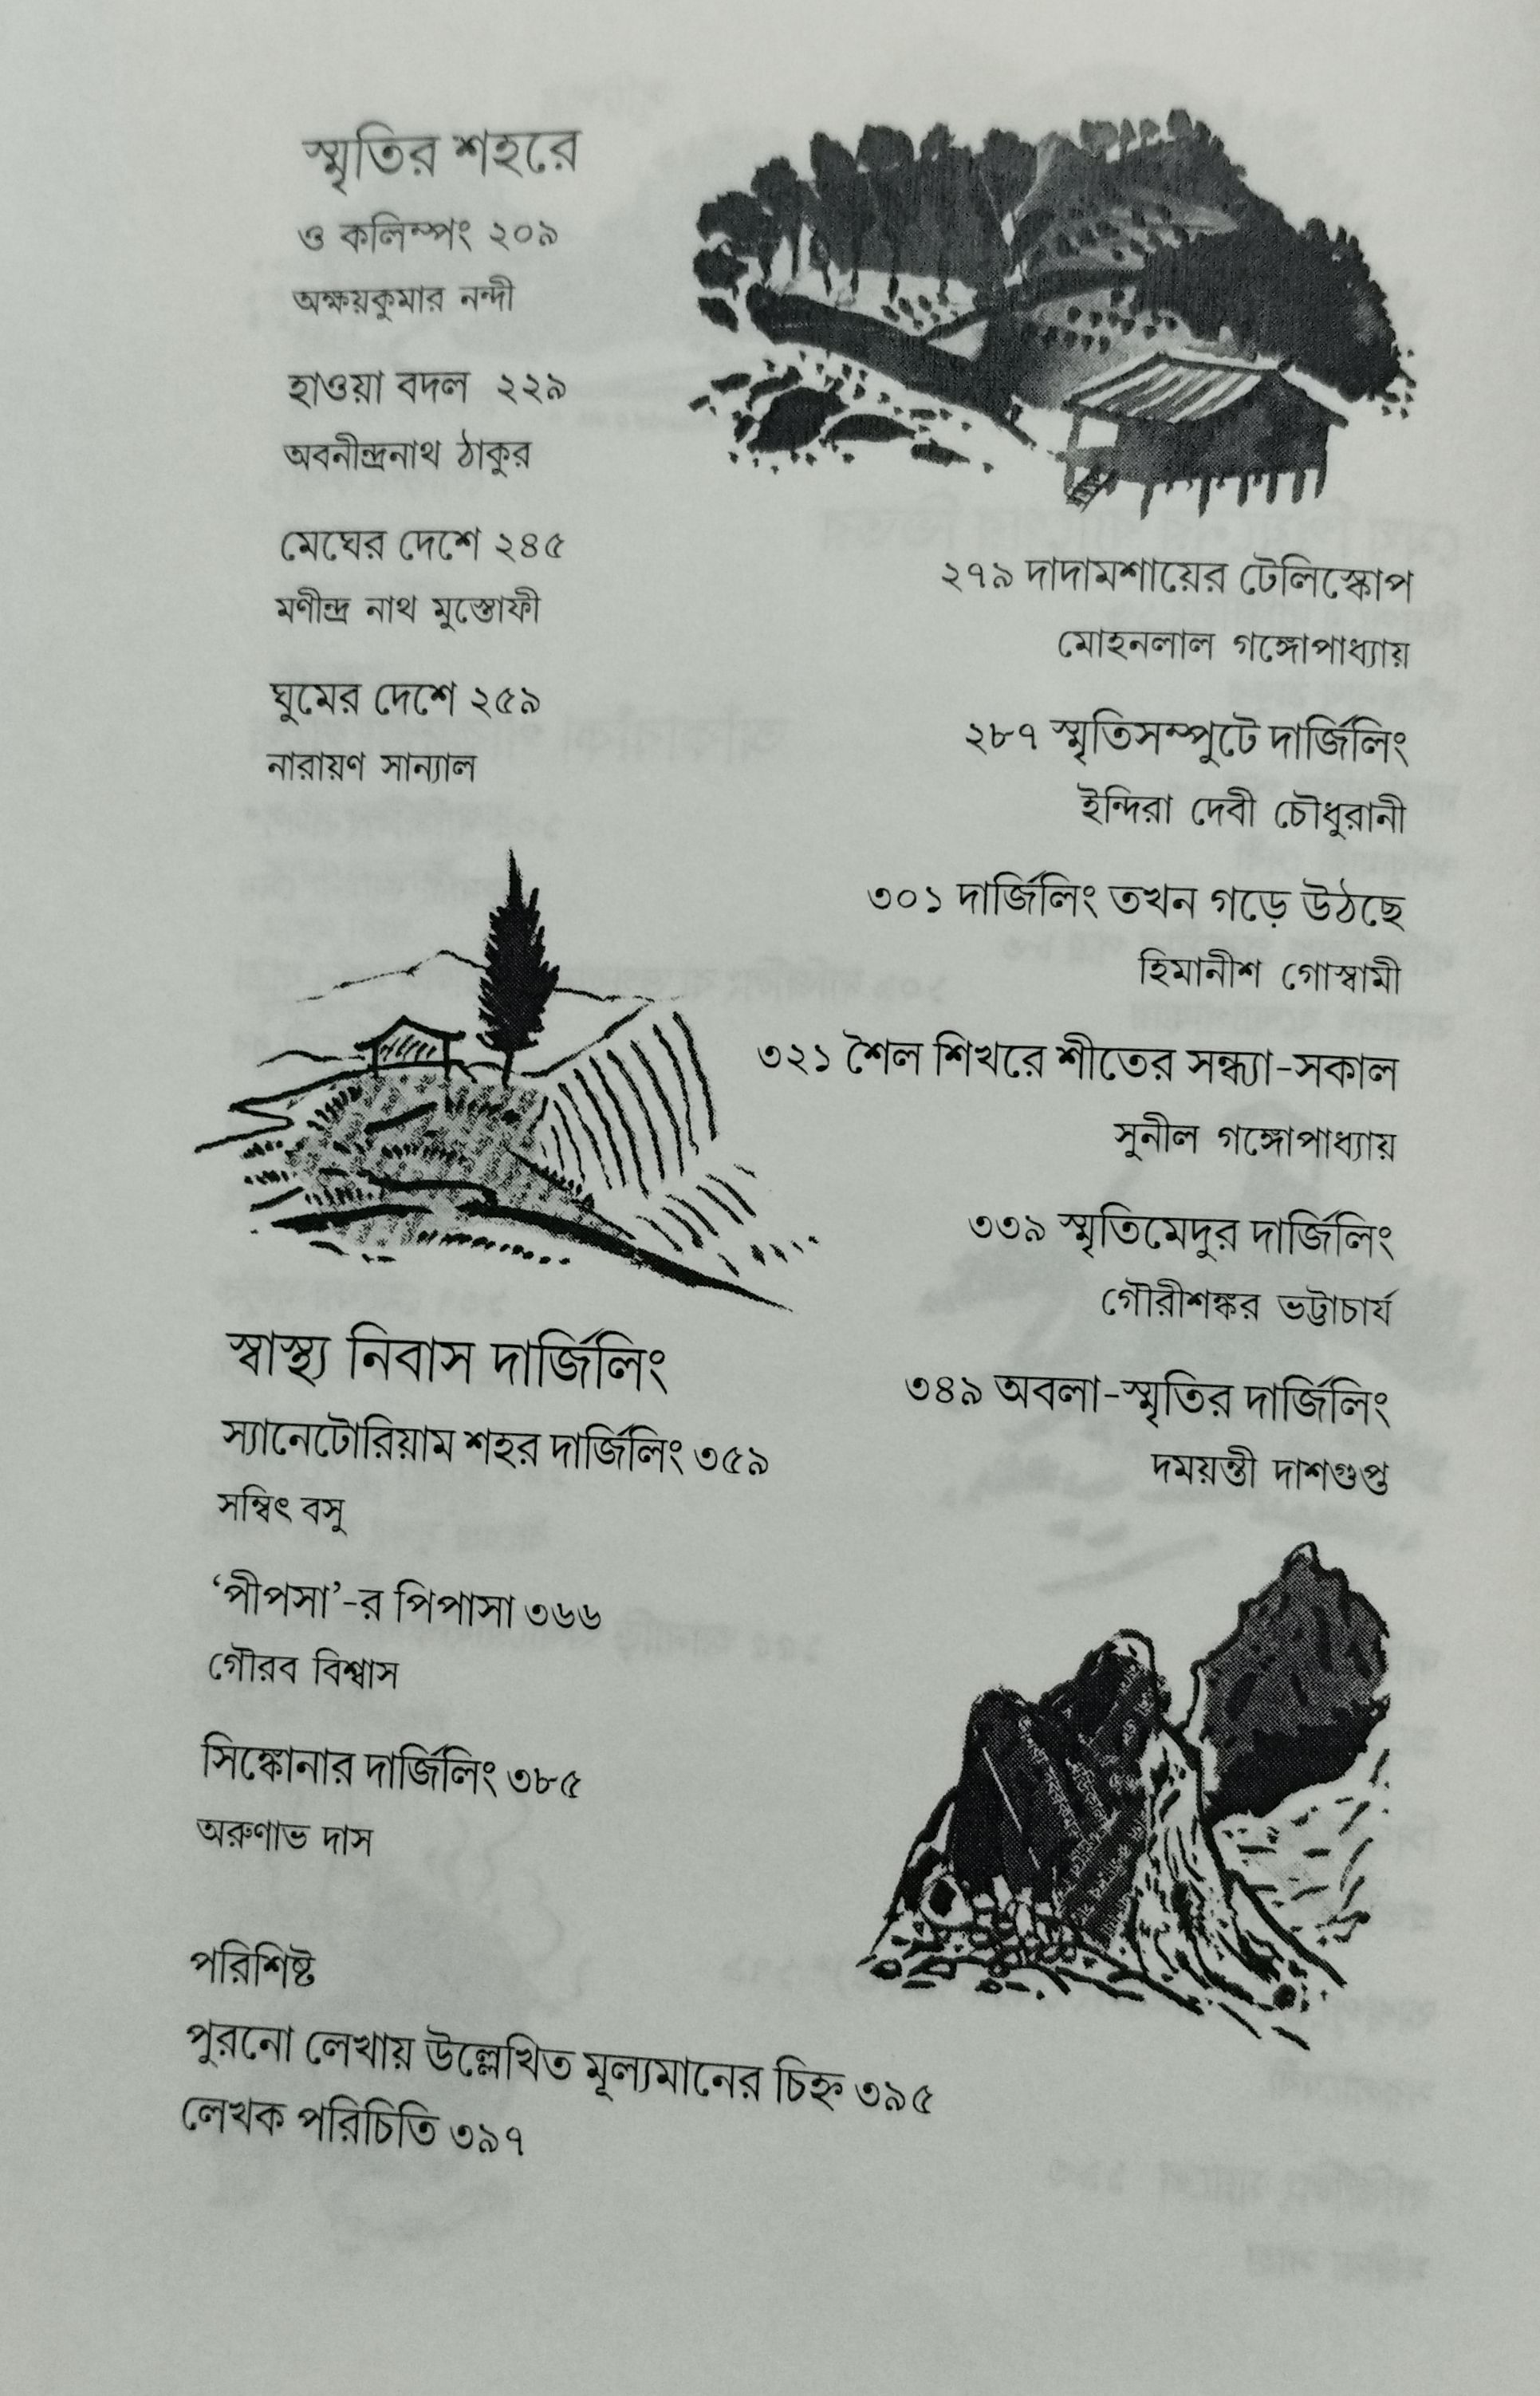 স্মৃতির শহরে
ও কলিম্পং ২০৯
অক্ষয়কুমার নন্দী
হাওয়া বদল ২২৯
অবনীন্দ্রনাথ ঠাকুর
মেঘের দেশে ২৪৫
মণীন্দ্র নাথ মুস্তোফী
ঘুমের দেশে ২৫৯
নারায়ণ সান্যাল
২৭৯ দাদামশায়ের টেলিস্কোপ
মোহনলাল গঙ্গোপাধ্যায়
২৮৭ স্মৃতিসম্পুটে দার্জিলিং
ইন্দিরা দেবী চৌধুরানী
৩০১ দার্জিলিং তখন গড়ে উঠছে
হিমানীশ গোস্বামী
৩২১ শৈল শিখরে শীতের সন্ধ্যা-সকাল
সুনীল গঙ্গোপাধ্যায়
৩৩৯ স্মৃতিমেদুর দার্জিলিং
গৌরীশঙ্কর ভট্টাচার্য
৩৪৯ অবলা-স্মৃতির দার্জিলিং
দময়ন্তী দাশগুপ্ত
স্বাস্থ্য নিবাস দার্জিলিং
স্যানেটোরিয়াম শহর দার্জিলিং ৩৫৯
সম্বিৎ বসু
‘পীপসা’-র পিপাসা ৩৬৬
গৌরব বিশ্বাস
সিঙ্কোনার দার্জিলিং ৩৮৫
অরুণাভ দাস
পরিশিষ্ট
পুরনো লেখায় উল্লেখিত মূল্যমানের চিহ্ন ৩৯৫
লেখক পরিচিতি ৩৯৭